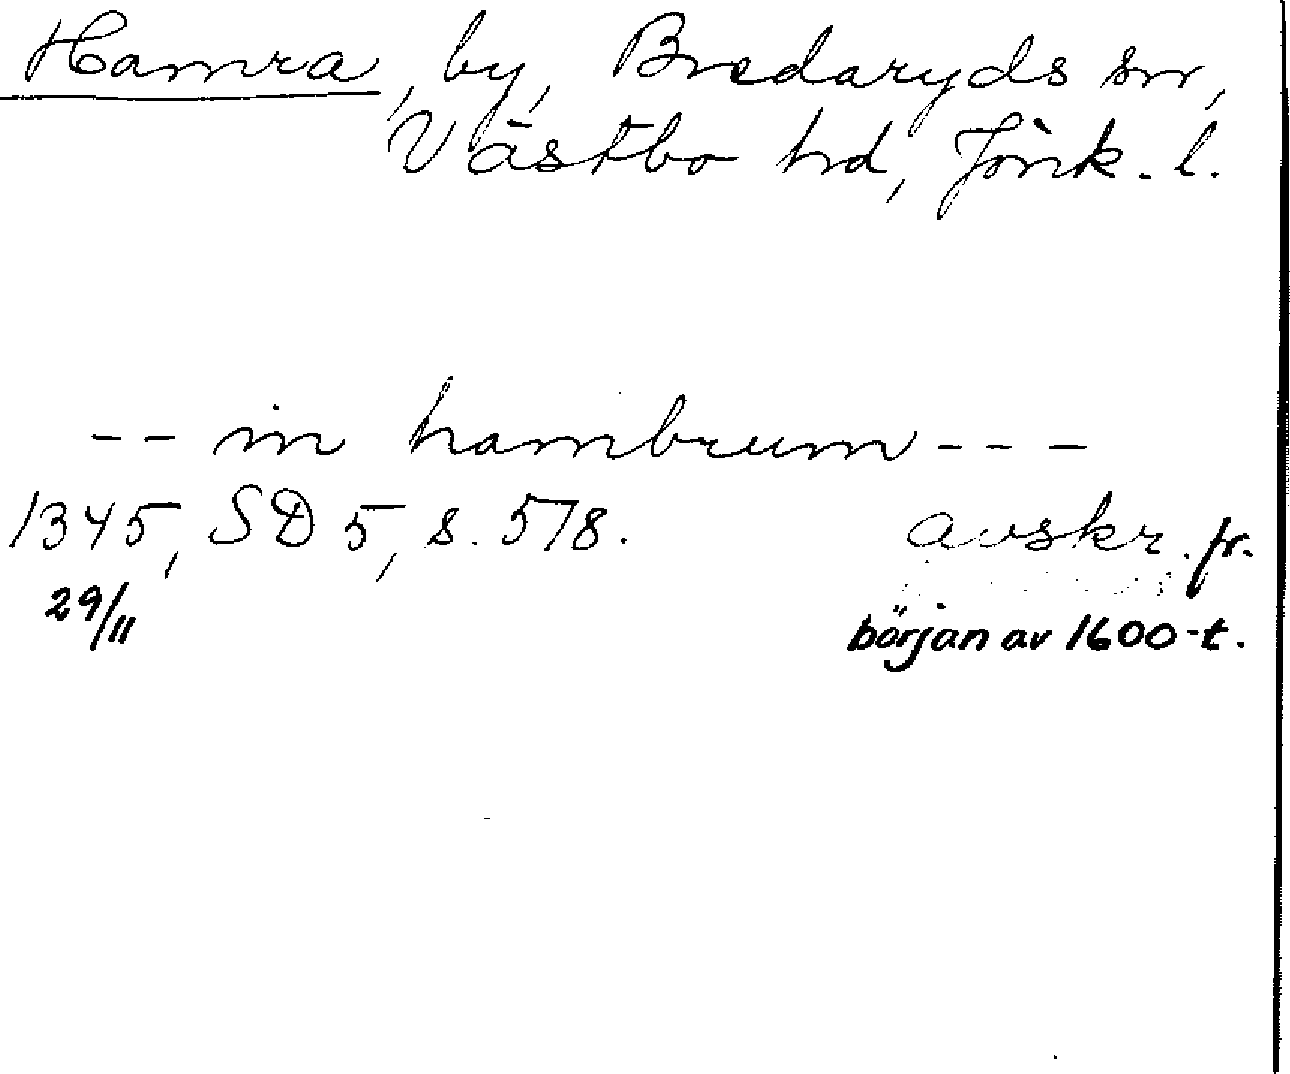 Hamra, by, Bredaryds sn,
Västbo hd, Jönk. l.
-- in hambrum ---
1345, SD 5, s. 578. avskr. fr.
29/11 början av 1600-t.